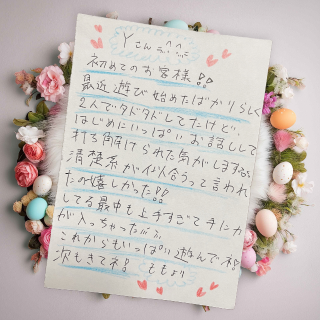 Yさん
初めてのお客様!!
最近遊び始めたばかりらしく
2人でタドタドしてたけど、
はじめにいっぱいお話しして
打ち解けられた気がします
清楚系が似合うって言われ
たの嬉しかった!!
してる最中も上手すぎて手に力
が入っちゃった
これからもいっぱい遊んでネ
次もきてネ